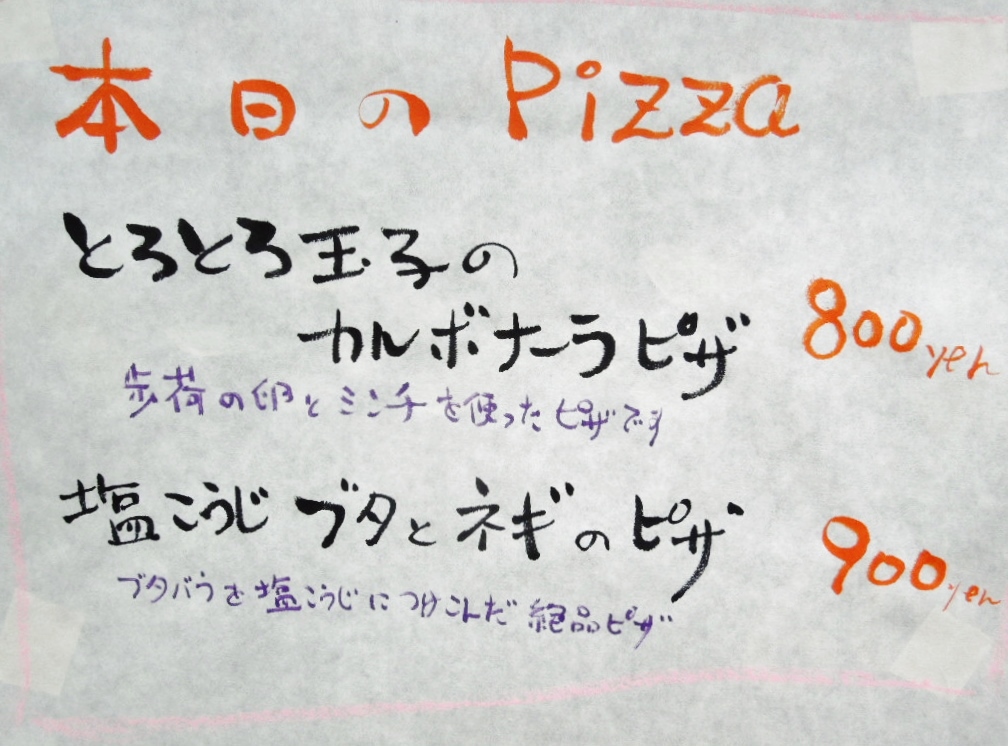 本日のPizza
とろとろ玉子の
カルボナーラピザ 800yen
歩荷の卵とミンチを使ったピザです
塩こうじ ブタとネギのピザ 900yen
ブタバラを塩こうじにつけこんだ 絶品ピザ